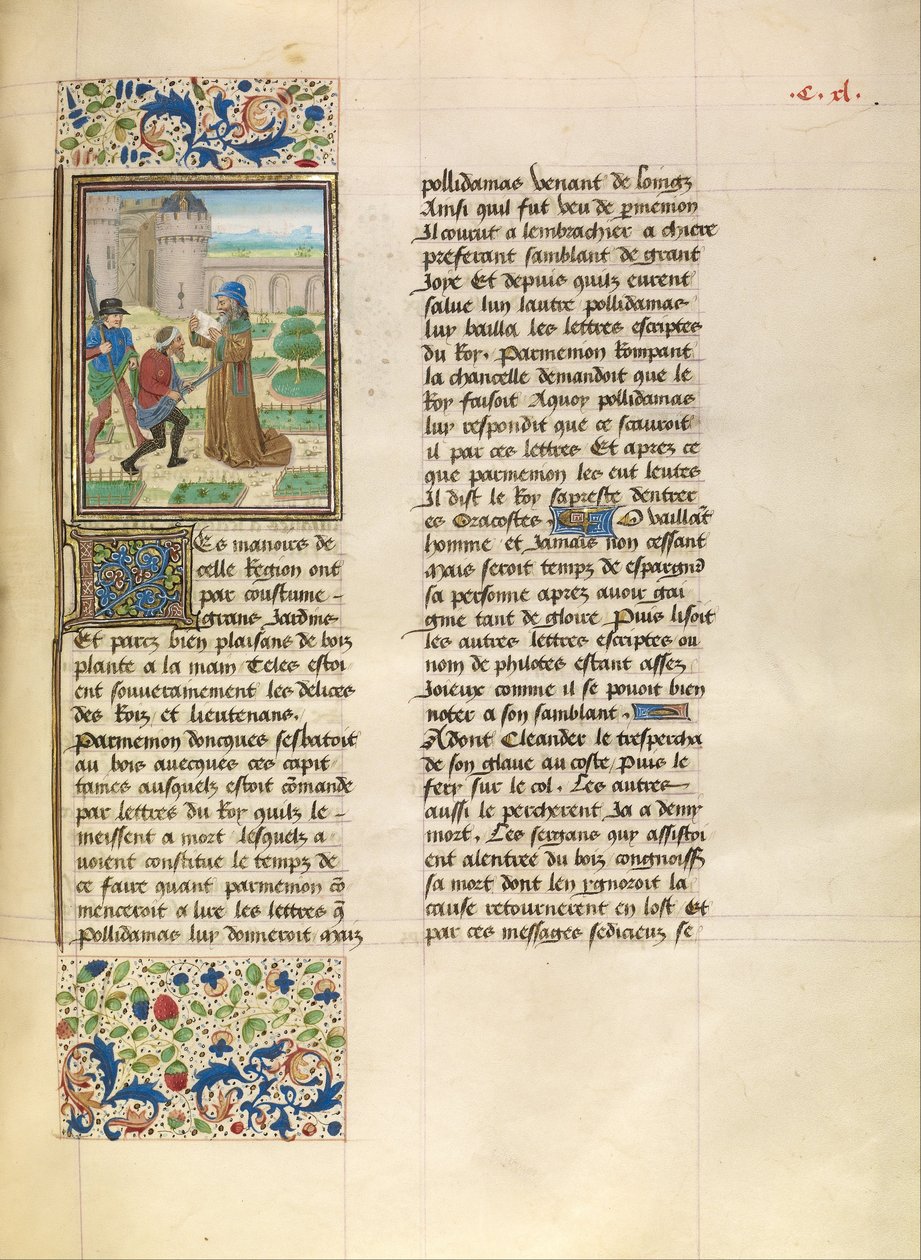 .C. xl.
Les manoirs de
celle Region ont
par coustume -
grans Jardins
Et parcz bien plaisans de boiz
plante a la main Teles estoi
ent souverainement les delices
des Roiz et lieutenans.
Parmenion doncques sesbatoit
au bois avecques ces capit
taines ausquelz estoit cōmande
par lettres du Roy quilz le -
meissent a mort lesquelz a
voient constitue le tempz de
ce faire quant parmenion cō
menceroit a lire les lettres q̄
Pollidamas luy donneroit Maiz
pollidamas venant de loingz
Ainsi quil fut veu de p̄menion
Il courut a lembrachier a chiere
preferant samblant de grant
Joye Et depuis quilz eurent
salue lun lautre pollidamas
luy bailla les lettres escriptes
du Roy. Parmenion Rompant
la chancelle demandoit que le
Roy faisoit Aquoy pollidamas
luy respondit que ce scauroit
il par ces lettres Et aprez ce
que parmenion les eut leutes
Il dist le Roy sapreste dentrer
es Oracostes. O vaillāt
homme et Jamais non cessant
Mais seroit tempz de espargnr̄
sa personne aprez avoir gai
gnie tant de gloire Puis lisoit
les autres lettres escriptes ou
nom de philotes estant assez
Joieux comme il se povoit bien
noter a son samblant.
Adont Cleander le trespercha
de son glave au coste, Puis le
fery sur le col. Les autres
aussi le percherent Ja a demy
mort. Les sergans quy assistoi
ent alentree du boiz congnoiss
sa mort dont len ygnoroit la
cause retournerent en lost Et
par ces messages sedicieux se